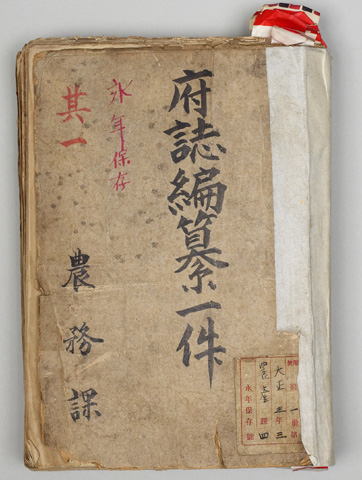 府誌編纂一件
永年保存
其一
農務課
大正三年三
永年保存